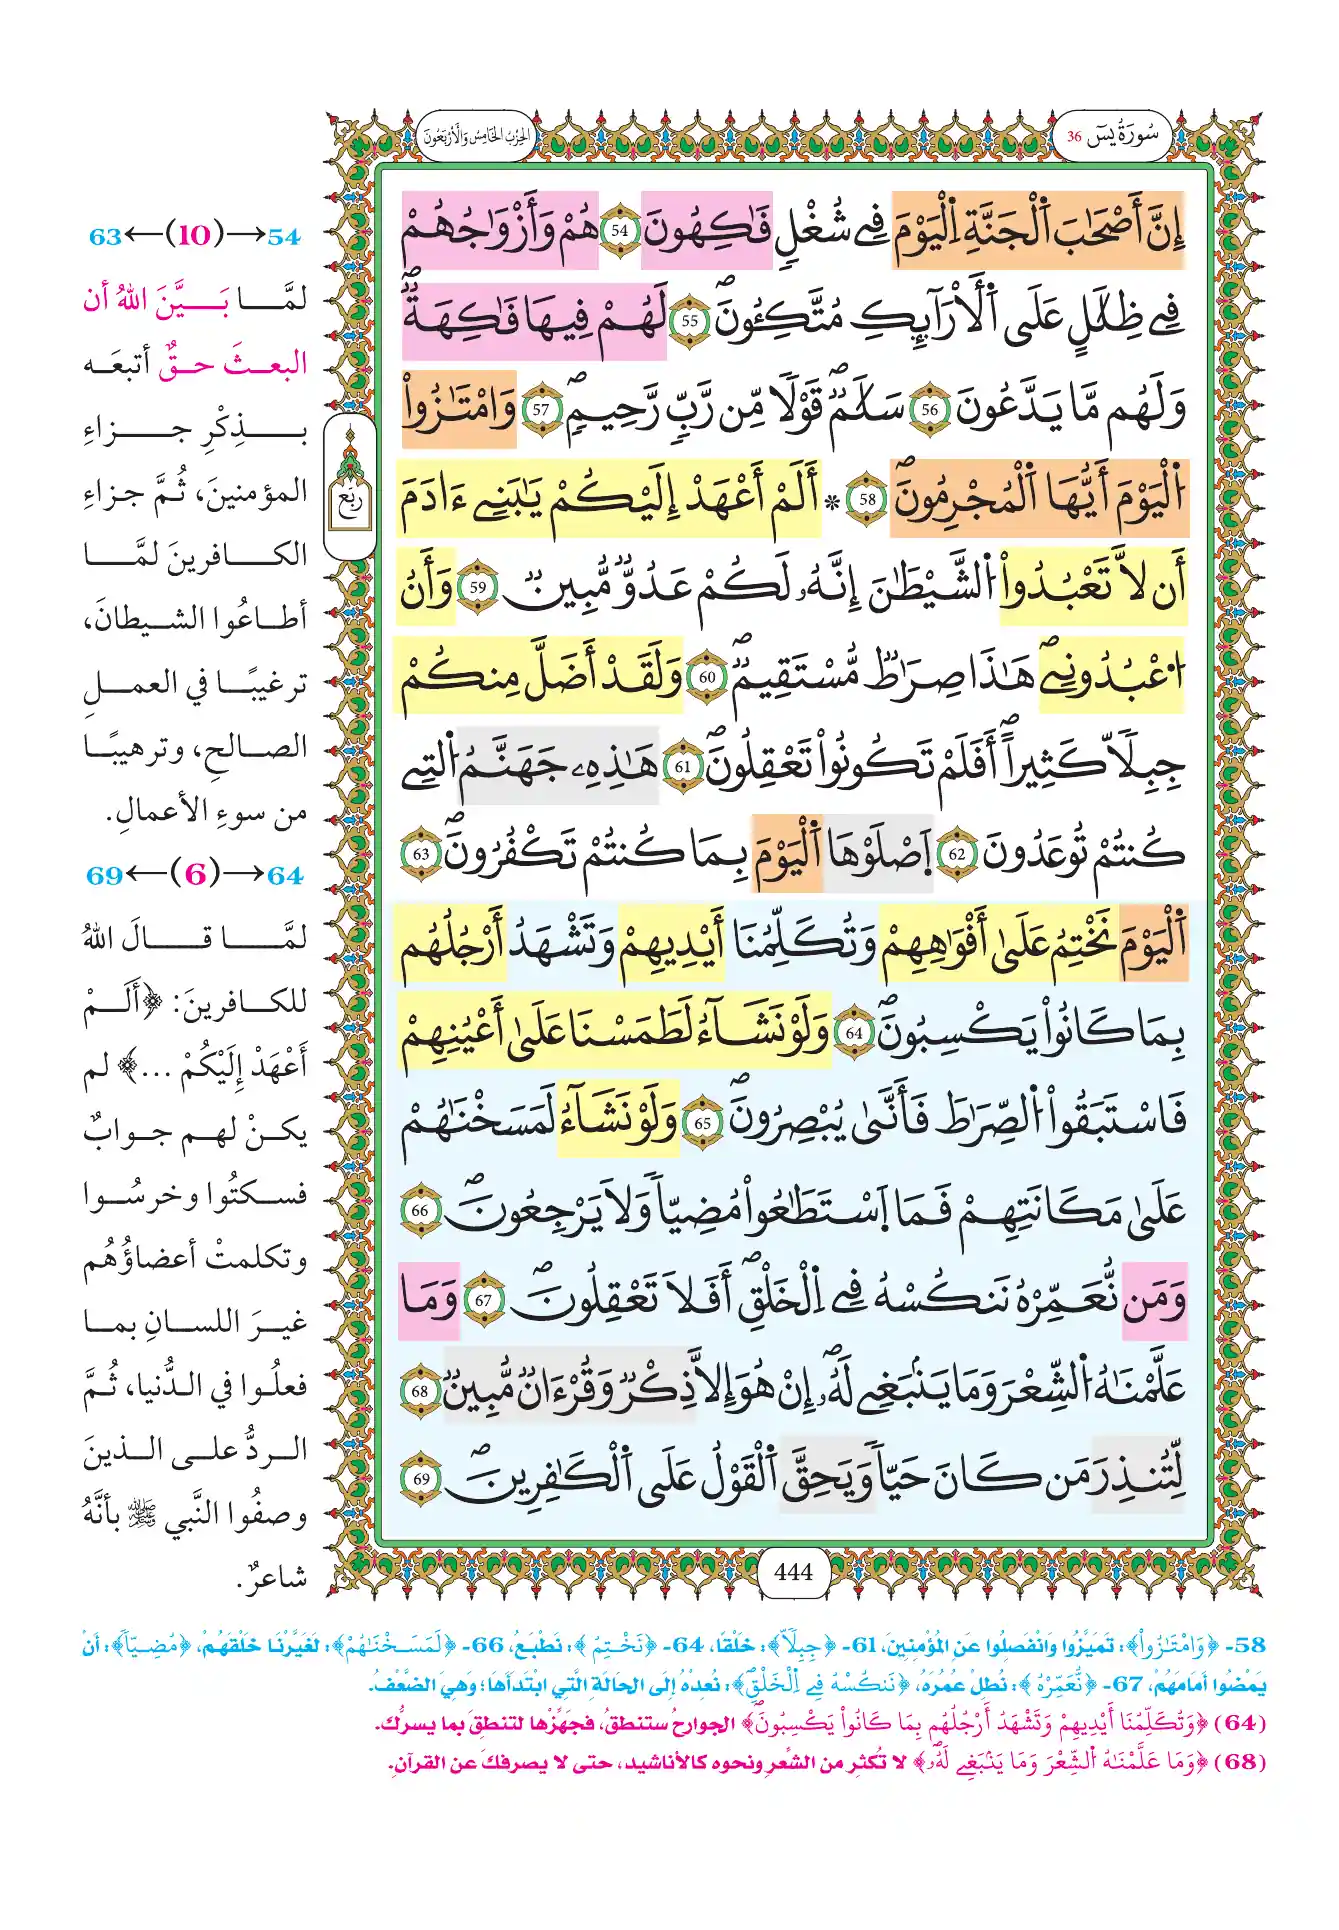 سُورَةُ يسٓ 36
الحِزْبُ الخَامِسُ وَالْأَرْبَعُونَ
إِنَّ أَصْحَٰبَ اَ۬لْجَنَّةِ اِ۬لْيَوْمَ فِے شُغْلٖ فَٰكِهُونَ 54 هُمْ وَأَزْوَٰجُهُمْ
فِے ظِلَٰلٍ عَلَي اَ۬لَارَآئِكِ مُتَّكِـُٔونَۖ 55 لَهُمْ فِيهَا فَٰكِهَةٞۖ
وَلَهُم مَّا يَدَّعُونَ 56 سَلَٰمٞۖ قَوْلاٗ مِّن رَّبّٖ رَّحِيمٖۖ 57 وَامْتَٰزُواْ
اُ۬لْيَوْمَ أَيُّهَا اَ۬لْمُجْرِمُونَۖ 58 * أَلَمْ أَعْهَدِ اِلَيْكُمْ يَٰبَنِے ءَادَمَ
أَن لَّا تَعْبُدُواْ اُ۬لشَّيْطَٰنَ إِنَّهُۥ لَكُمْ عَدُوّٞ مُّبِينٞ 59 وَأَنُ
اُ۟عْبُدُونِےۖ هَٰذَا صِرَٰطٞ مُّسْتَقِيمٞۖ 60 وَلَقَدَ اَضَلَّ مِنكُمْ
جِبِلّاٗ كَثِيراًۖ اَفَلَمْ تَكُونُواْ تَعْقِلُونَۖ 61 هَٰذِهِۦ جَهَنَّمُ اُ۬لتِے
كُنتُمْ تُوعَدُونَ 62 اَ۪صْلَوْهَا اَ۬لْيَوْمَ بِمَا كُنتُمْ تَكْفُرُونَۖ 63
اَ۬لْيَوْمَ نَخْتِمُ عَلَىٰٓ أَفْوَٰهِهِمْ وَتُكَلِّمُنَا أَيْدِيهِمْ وَتَشْهَدُ أَرْجُلُهُم
بِمَا كَانُواْ يَكْسِبُونَۖ 64 وَلَوْ نَشَآءُ لَطَمَسْنَا عَلَىٰٓ أَعْيُنِهِمْ
فَاسْتَبَقُواْ اُ۬لصِّرَٰطَ فَأَنّ۪ىٰ يُبْصِرُونَۖ 65 وَلَوْ نَشَآءُ لَمَسَخْنَٰهُمْ
عَلَىٰ مَكَانَتِهِمْ فَمَا اَ۪سْتَطَٰعُواْ مُضِيّاٗ وَلَا يَرْجِعُونَۖ 66
وَمَن نُّعَمِّرْهُ نَنكُسْهُ فِے اِ۬لْخَلْقِۖ أَفَلَا تَعْقِلُونَۖ 67 وَمَا
عَلَّمْنَٰهُ اُ۬لشِّعْرَ وَمَا يَنۢبَغِے لَهُۥٓۖ إِنْ هُوَ إِلَّا ذِكْرٞ وَقُرْءَانٞ مُّبِينٞ 68
لِّتُنذِرَ مَن كَانَ حَيّاٗ وَيَحِقَّ اَ۬لْقَوْلُ عَلَي اَ۬لْكٰ۪فِرِينَۖ 69
ربع
444
63←(10)→54
لمَّا بَيَّنَ اللهُ أن
البعثَ حقٌّ أتبعَه
بذِكْرِ جزاءِ
المؤمنينَ، ثُمَّ جزاءِ
الكافرينَ لمَّا
أطاعُوا الشيطانَ،
ترغيبًا في العملِ
الصالحِ، وترهيبًا
من سوءِ الأعمالِ.
69←(6)→64
لمَّا قالَ اللهُ
للكافرينَ: ﴿أَلَمْ
أَعْهَدْ إِلَيْكُمْ ...﴾ لم
يكنْ لهم جوابٌ
فسكتُوا وخرسُوا
وتكلمتْ أعضاؤُهُم
غيرَ اللسانِ بما
فعلُوا في الدُّنيا، ثُمَّ
الردُّ على الذينَ
وصفُوا النَّبي ﷺ بأنَّهُ
شاعرٌ.
58- ﴿وَامْتَٰزُواْ﴾: تَمَيَّزُوا وَانْفَصِلُوا عَنِ المُؤْمِنِينَ، 61- ﴿جِبِلّاٗ﴾: خَلْقًا، 64- ﴿نَخْتِمُ﴾: نَطْبَعُ، 66- ﴿لَمَسَخْنَٰهُمْ﴾: لَغَيَّرْنَا خَلْقَهُمْ، ﴿مُضِيّاٗ﴾: أَنْ
يَمْضُوا أَمَامَهُمْ، 67- ﴿نُّعَمِّرْهُ﴾: نُطِلْ عُمُرَهُ، ﴿نَنكُسْهُ فِے اِ۬لْخَلْقِۖ﴾: نُعِدْهُ إِلَى الحَالَةِ الَّتِي ابْتَدَأَهَا؛ وَهِيَ الضَّعْفُ.
(64) ﴿وَتُكَلِّمُنَا أَيْدِيهِمْ وَتَشْهَدُ أَرْجُلُهُم بِمَا كَانُواْ يَكْسِبُونَۖ﴾ الجوارحُ ستنطقُ، فجَهِّزْها لتنطقَ بما يسرُّك.
(68) ﴿وَمَا عَلَّمْنَٰهُ اُ۬لشِّعْرَ وَمَا يَنۢبَغِے لَهُۥٓۖ﴾ لا تُكثِر من الشِّعرِ ونحوه كالأناشيد، حتى لا يصرفكَ عن القرآنِ.